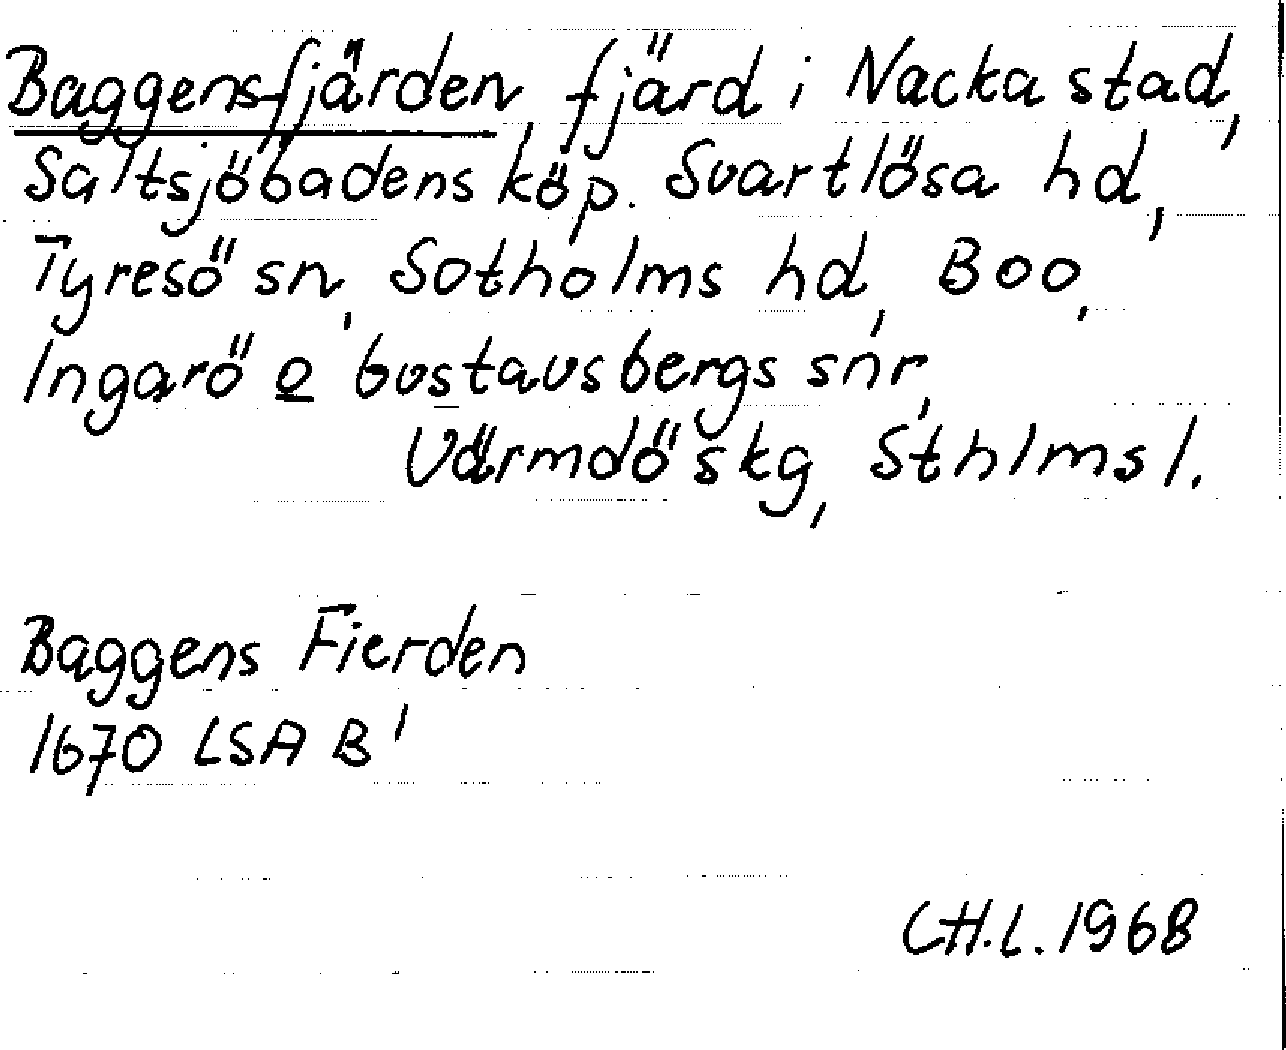 Baggensfjärden, fjärd i Nacka stad,
Saltsjöbadens köp. Svartlösa hd,
Tyresö sn, Sotholms hd, Boo,
Ingarö o Gustavsbergs snr,
Värmdö skg, Sthlms l.
Baggens Fierden
1670 LSA B 1
CH.L. 1968